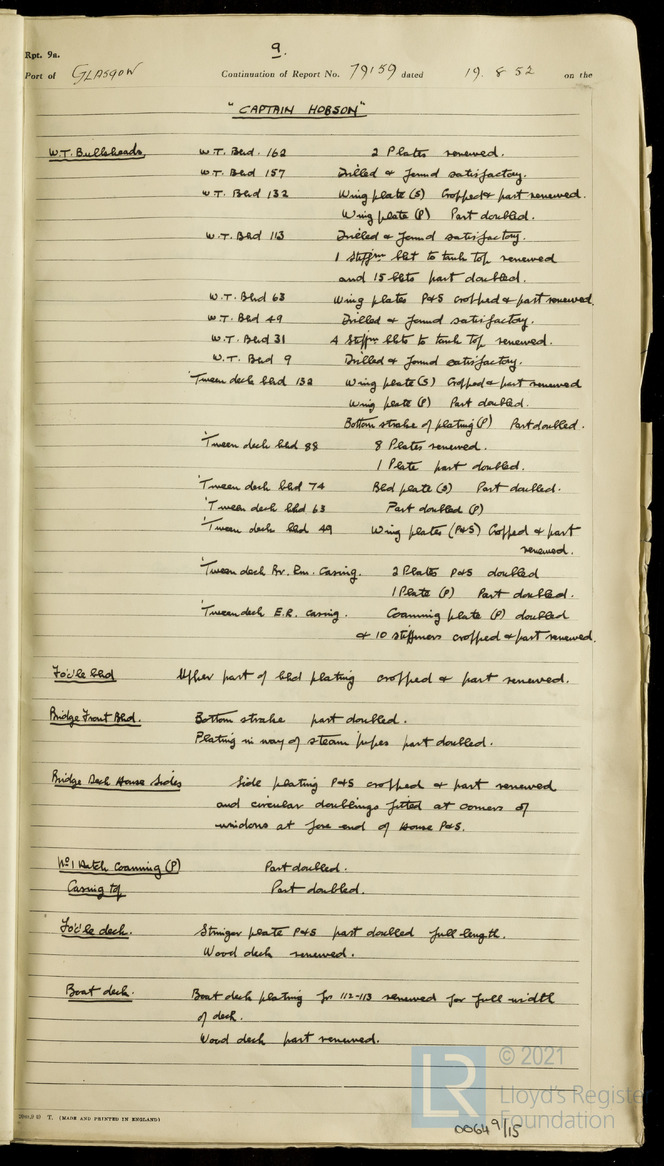 Rpt. 9a.
9.
Port of GLASGOW Continuation of Report No. 79159 dated 19. 8 52 on the
"CAPTAIN HOBSON"
W.T. Bulkheads W.T. Bhd. 162 2 Plates renewed.
W.T. Bhd 157 Drilled & found satisfactory.
W.T. Bhd 132 Wing plate (S) Cropped & part renewed.
Wing plate (P) Part doubled.
W.T. Bhd 113 Drilled & found satisfactory.
1 Stiffnr bkt to tank top renewed
and 15 bkts part doubled.
W.T. Bhd 63 Wing plates P&S cropped & part renewed.
W.T. Bhd 49 Drilled & found satisfactory.
W.T. Bhd 31 4 Stiffnr bkts to tank top renewed.
W.T. Bhd 9 Drilled & found satisfactory.
'Tween deck bhd 132 Wing plate (S) Cropped & part renewed
Wing plate (P) Part doubled.
Bottom strake of plating (P) Part doubled.
'Tween deck bhd 88 8 Plates renewed.
1 Plate part doubled.
'Tween deck bhd 74 Bhd plate (S) Part doubled.
'Tween deck bhd 63 Part doubled (P)
'Tween deck bhd 49 Wing plates (P&S) Cropped & part
renewed.
'Tween deck Br. Rm. Casing. 2 Plates P&S doubled
1 Plate (P) Part doubled.
'Tween deck E.R. Casing. Coaming plate (P) doubled
& 10 stiffeners cropped & part renewed.
Fo'c'le bhd Upper part of bhd plating cropped & part renewed.
Bridge Front Bhd. Bottom strake part doubled.
Plating in way of steam pipes part doubled.
Bridge Deck House Sides Side plating P&S cropped & part renewed
and circular doublings fitted at corners of
windows at fore end of House P&S.
No 1 Hatch Coaming (P) Part doubled.
Casing top Part doubled.
Fo'c'le deck. Stringer plate P&S part doubled full length.
Wood deck renewed.
Boat deck. Boat deck plating fr 112-113 renewed for full width
of deck.
Wood deck part renewed.
T. (MADE AND PRINTED IN ENGLAND)
LR © 2021
Lloyd's Register
Foundation
00649/15